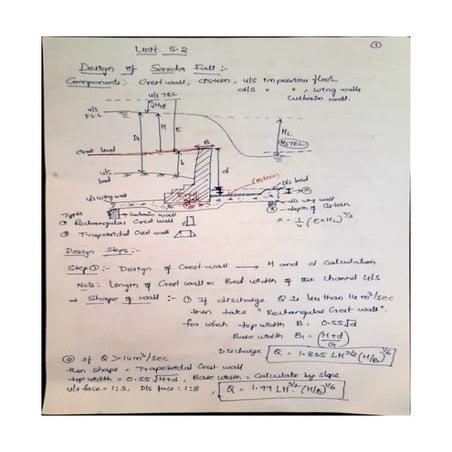 ①
Unit 5.2
Design of Sarda Fall :-
Components : Crest wall, cistern, u/s impervious floor
d/s " " , wing walls
Curtain wall.
u/s TEL
u/s
F.S.L
H
E
D₁
HL
D/s TEL
Crest level
B
h
d
u/s
bed
Cistern
D/s bed
u/s wing wall
Curtain wall
D/s wing wall
x = depth of Cistern
x = 1/4 (E×HL)^2/3
Types
① Rectangular Crest wall
② Trapezoidal Crest wall
Design Steps :-
Step ① :- Design of Crest wall → H and d Calculation
Note: Length of Crest wall = Bed width of the channel d/s
→ Shape of wall :- ① If discharge Q is less than 14 m³/sec
then take "Rectangular Crest wall".
for which top width B = 0.55√d
Base width B₁ = (H+d)/G
Discharge Q = 1.835 LH^3/2 (H/B)^1/6
② If Q > 14 m³/sec
then shape = Trapezoidal Crest wall
top width = 0.55 √H+d , Base width = Calculate by slope
u/s face = 1:3, D/s face = 1:8 , Q = 1.99 LH^3/2 (H/B)^1/6